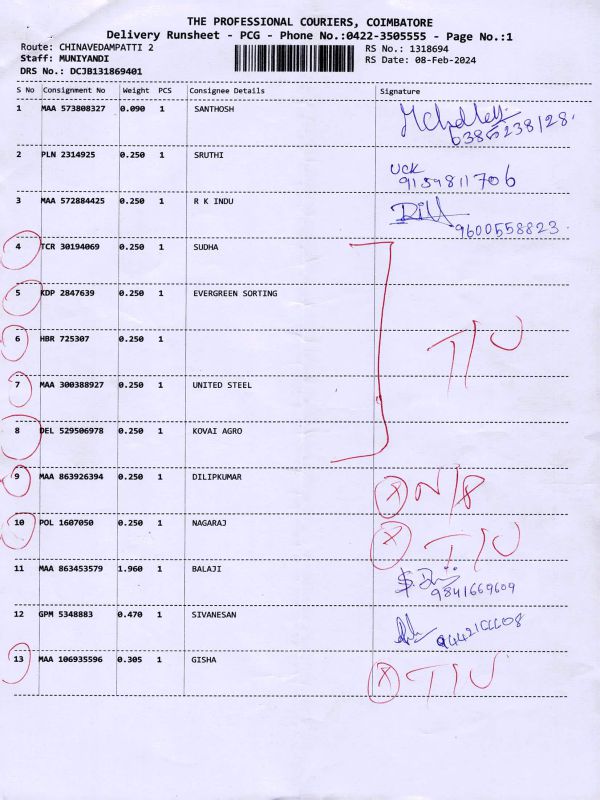 THE PROFESSIONAL COURIERS, COIMBATORE
Delivery Runsheet - PCG - Phone No.:0422-3505555 - Page No.:1
Route: CHINAVEDAMPATTI 2 RS No.: 1318694
Staff: MUNIYANDI RS Date: 08-Feb-2024
DRS No.: DCJB131869401
S No Consignment No Weight PCS Consignee Details Signature
1 MAA 573808327 0.090 1 SANTHOSH
6385238128.
2 PLN 2314925 0.250 1 SRUTHI UCK
9159811706
3 MAA 572884425 0.250 1 R K INDU
9600558823
4 TCR 30194069 0.250 1 SUDHA
5 KDP 2847639 0.250 1 EVERGREEN SORTING
6 HBR 725307 0.250 1 T/U
7 MAA 300388927 0.250 1 UNITED STEEL
8 DEL 529506978 0.250 1 KOVAI AGRO
9 MAA 863926394 0.250 1 DILIPKUMAR X N/8
10 POL 1607050 0.250 1 NAGARAJ X T/U
11 MAA 863453579 1.960 1 BALAJI
9841669609
12 GPM 5348883 0.470 1 SIVANESAN
13 MAA 106935596 0.305 1 GISHA X T/U